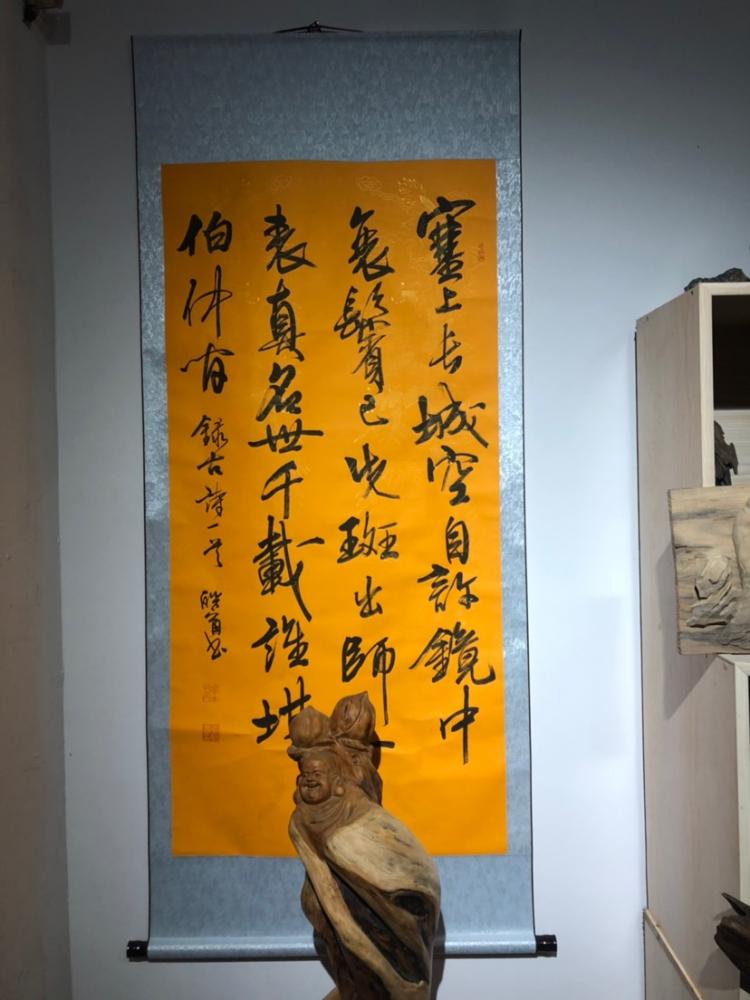 塞上长城空自許鏡中
衰鬢已先斑出師
表真名世千載誰堪
伯仲间
録古诗一首